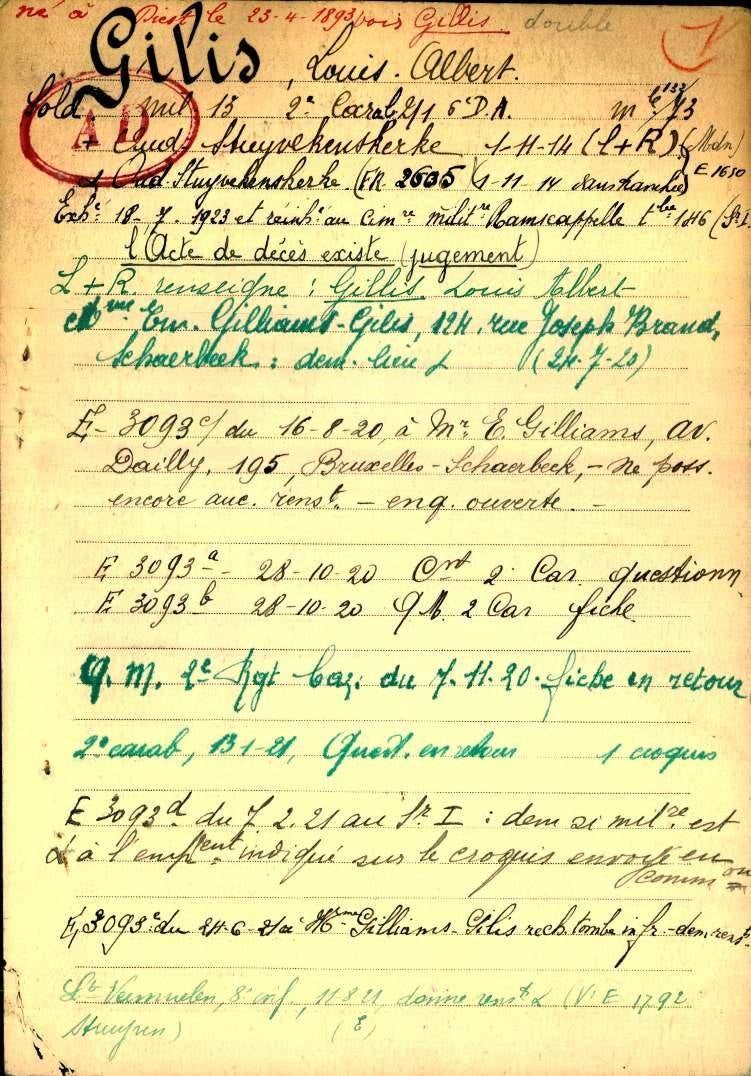 né à Diest le 23-4-1893 vois Gillis double
Gilis, Louis. Albert.
Sold mil 13 2e Carab 2/1 6e D.A. m
A D
+ Oud Stuyvekenskerke 1-11-14 (L+R) (Mdn)
+ Oud Stuyvekenskerke (FR 2635 1-11-14 dans tranchée) E 1650
Exhé 18-7-1923 et réinhé au cimre militre Ramscappelle tbe 186 (Sr I
l'Acte de décès existe (jugement)
L+R. renseigne : Gillis Louis Albert
Mme Em. Gilliams-Gilis, 124, rue Joseph Brand,
Schaerbeek : dem. lieu + (24-7-20)
E- 3093c/ du 16-8-20, à Mr. E. Gilliams, av.
Dailly, 195, Bruxelles-Schaerbeek, - ne poss.
encore auc. renst. - enq. ouverte. -
E 3093a - 28-10-20 Cnt 2 Car questionn
E 3093b 28-10-20 QM 2 Car fiche
Q. M. 2e Rgt Car. du 7.11.20. fiche en retour
2e carab, 13-1-21, Quest. en retour 1 croquis
E 3093d du 7.2.21 au Sr I : dem si milre est
+ à l'empent indiqué sur le croquis envoyé en
comm on
E, 3093e du 24-6-21 à Mme Gilliams-Gilis rech. tombe inf r.- dem renst-
Lt Vermuelen, 8e inf, 11 8 21, donne renst + (V. E 1792
Stuyven) (E)